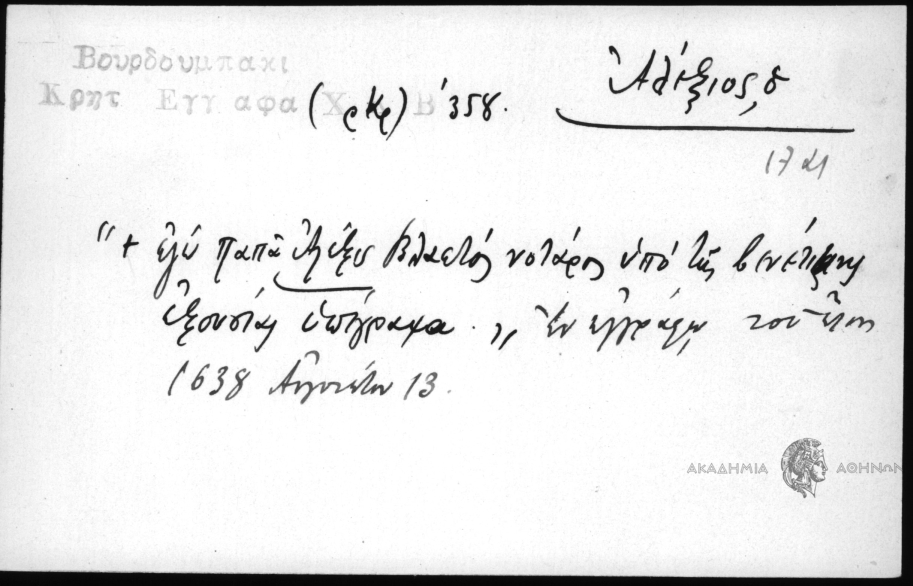 Βουρδουμπακι
Κρητ Εγγ αφα Χ Β
(ρκρ) 358.
Ἀλέξιος, ὁ
17
"+ ἐγώ παπᾶ Ἀλέξις Βλαστός νοτάρος ὑπό τῆς βενέτικης
ἐξουσίας ὑπόγραφα. ,, Ἐν ἐγγράφῳ τοῦ ἔτους
1638 Αὐγούστου 13.
ΑΚΑΔΗΜΙΑ ΑΘΗΝΩΝ